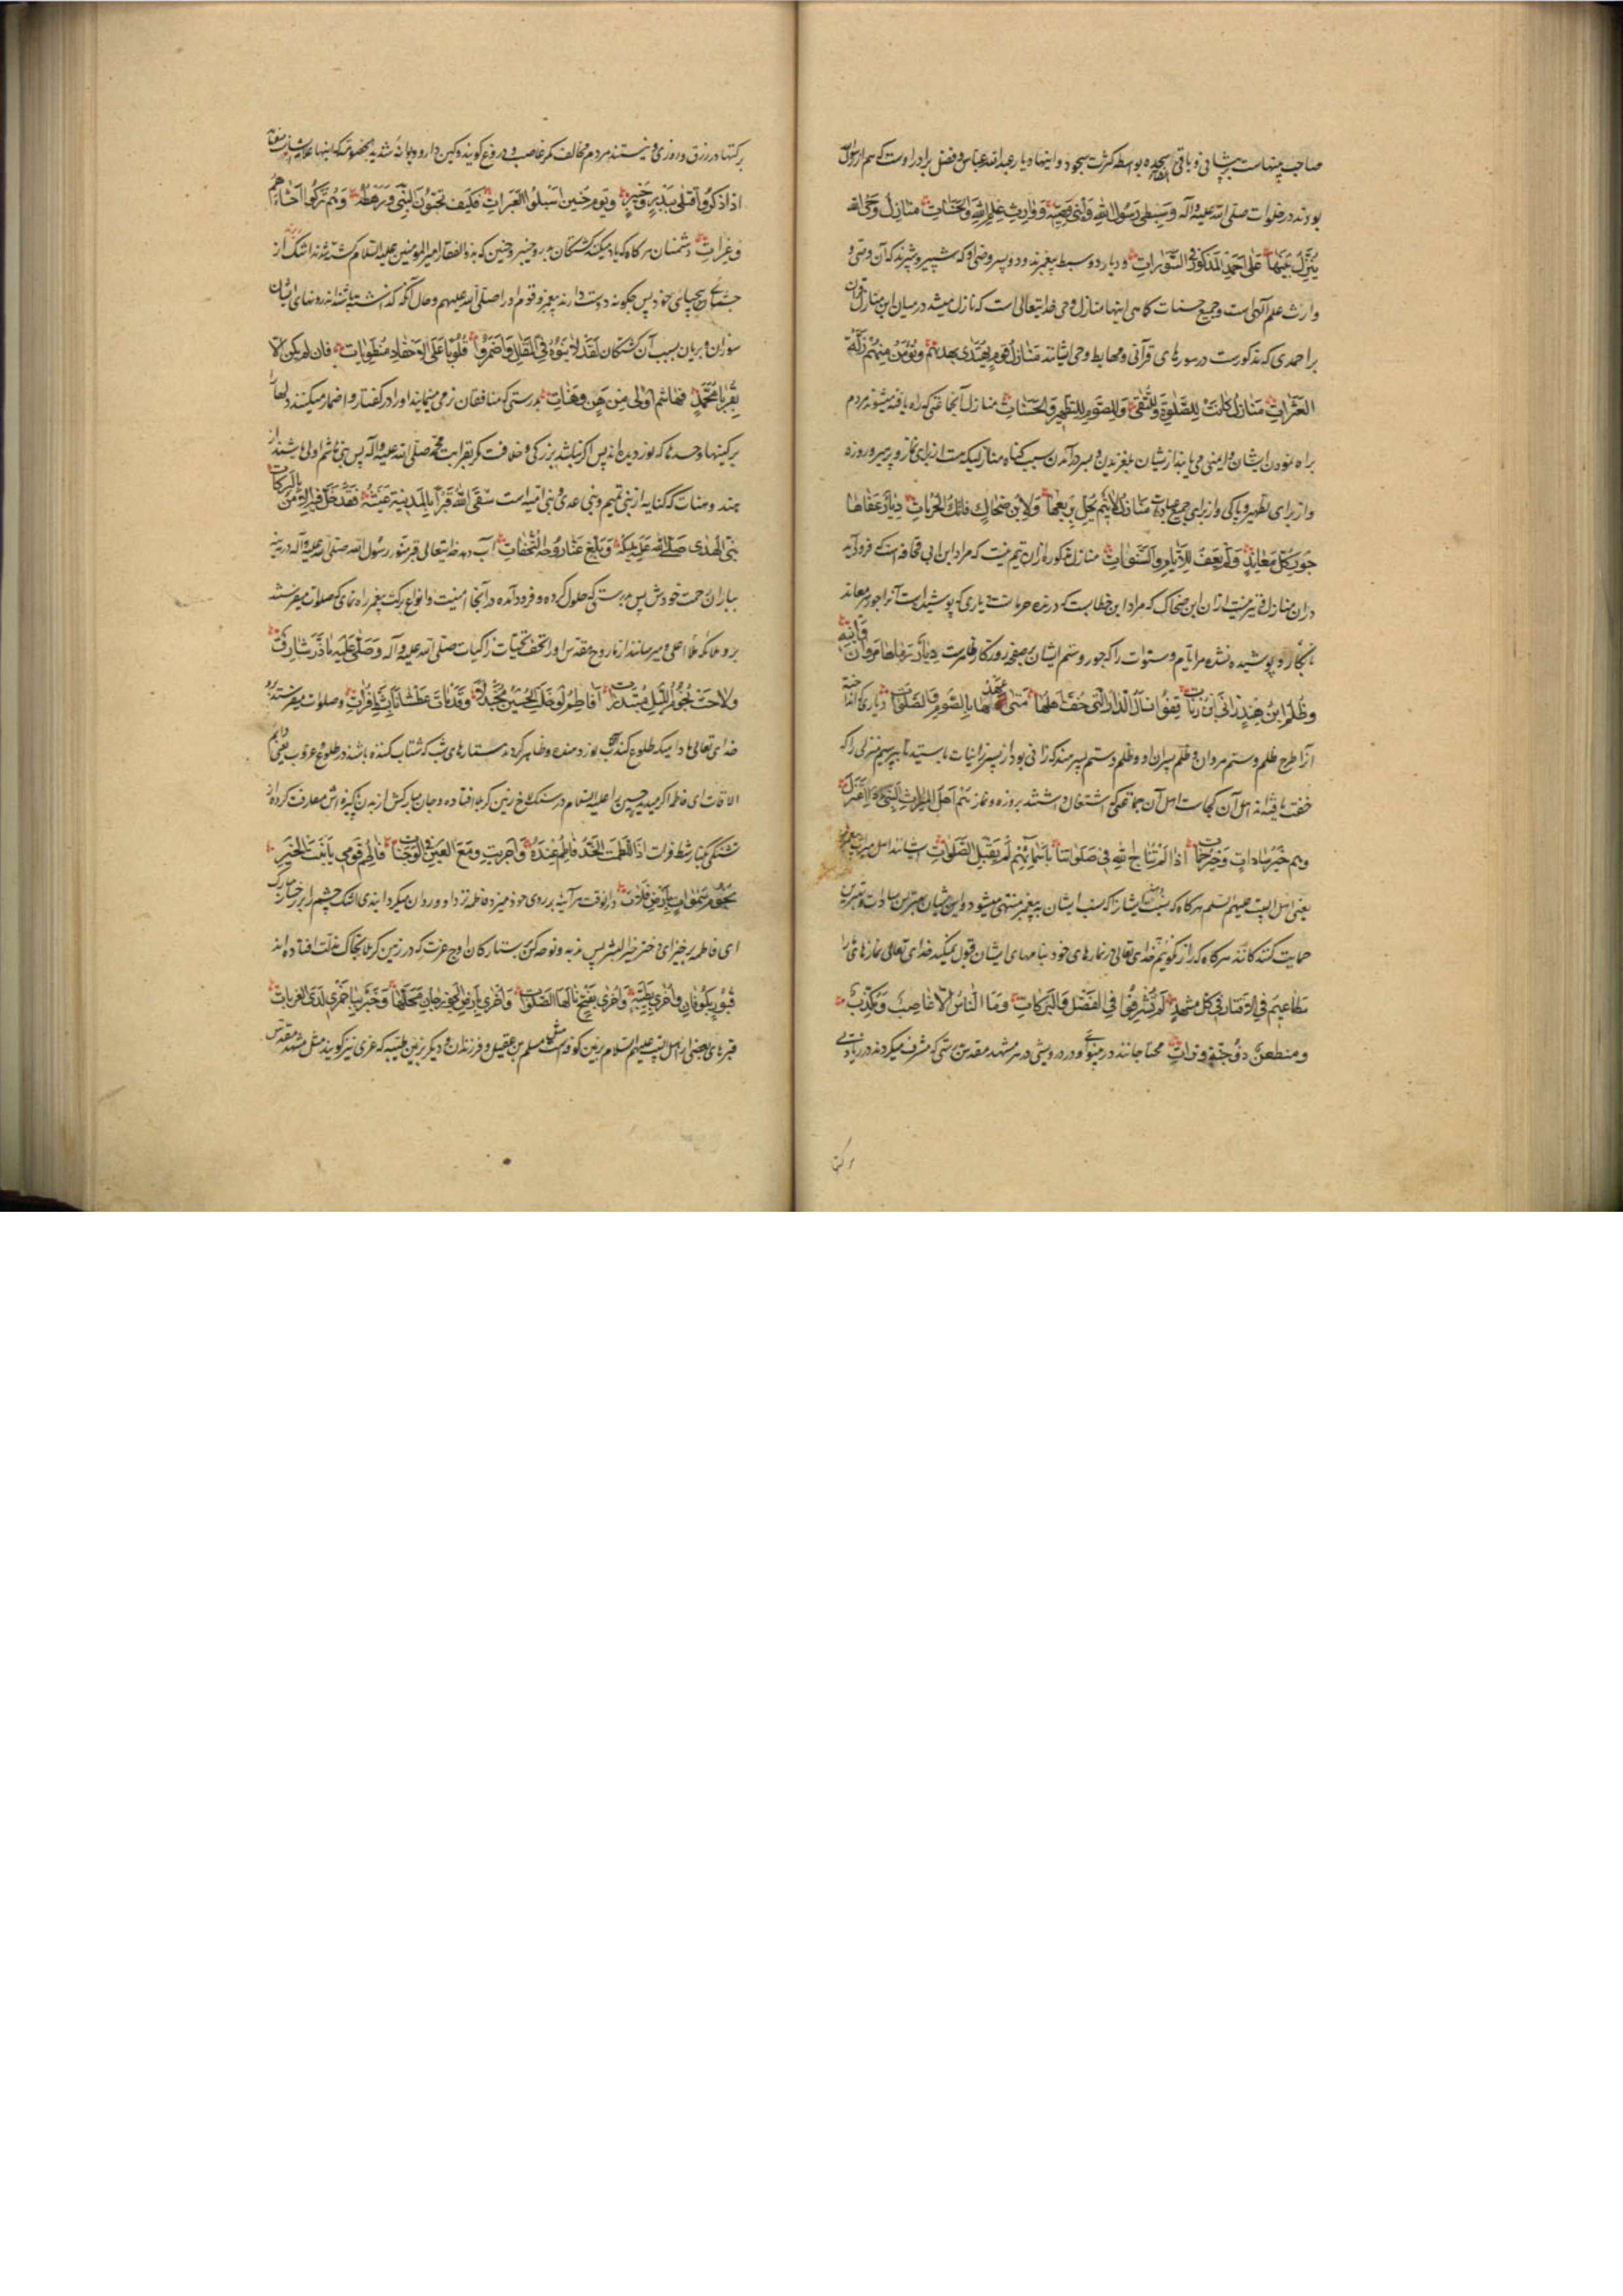 صاحب پینهاست بر پیشانی و باقی سجده بواسطه کثرت سجود و اینها دیار عبدالله عباس و فضل برادر اوست که هم از رسول
بودند در خلوات صلی الله علیه و آله وَسِبطَی رَسُولِ اللهِ وَابنَی وَصِیِّهِ وَوَارِثِ عِلمِ اللهِ وَالحَسَنَاتِ مَنَازِلُ وَحیِ اللهِ
یَنزِلُ بَینَهَا عَلی اَحمَدَ المَذکُورِ فِی السُّوَرَاتِ و دیار دو سبط پیغمبرند و دو پسر وصی او که شبیر و شبرند که آن وصی و
وارث علم آلهی است و جمیع حسنات کاهی اینها منازل وحی خدایتعالی است که نازل میشد در میان این منازل
بر احمدی که مذکورست در سورهای قرآنی و مهابط وحی ایشانند مَنَازِلُ قَومٍ یُهتَدی بِهُداهُم وَتُؤمَنُ مِنهُم زَلَّةُ
العَثَرَاتِ مَنَازِلُ کَانَت لِلصَّلوةِ وَلِلتُّقی وَلِلصَّومِ وَالتَّطهِیرِ وَالحَسَنَاتِ منازل آنجماعتی که راه یافته میشوند مردم
براه نمودن ایشان و ایمنی می یابند از ایشان بلغزیدن و بسر درآمدن بسبب کناه منازلیکه هست از برای نماز و پرهیز و روزه
و از برای تطهیر و پاکی و از برای جمیع عبادت مَنَازِلُ لَا تَیمٌ یَحُلُّ بِرَبعِهَا وَلَا ابنُ ضَحَّاكٍ فَاتِكُ الحُرُمَاتِ دِیَارٌ عَفَاهَا
جَورُ کُلِّ مُعَانِدٍ وَلَم تَعفُ لِلاَیَّامِ وَالسَّنَوَاتِ منازل مذکوره از ان تیم نیست که مراد ابن ابی قحافه است که فرود آید
در ان منازل و نیز نیست از ان ابن ضحاک که مراد ابن خطابست که درنده حرمات دیاری که پوشیداست آنرا جور معاند
نابکار و پوشیده نشده مر ایام و سنوات را که جور و ستم ایشان بر صفحه روزکار ظاهرست
وَظُلمُ ابنِ هِندٍ قِفُوا نَسأَلِ الدَّارَ الَّتِی خَفَّ اَهلُهَا مَتی عَهدُهَا بِالصَّومِ وَالصَّلَوَاتِ
انرا طرح ظلم و ستم مروان و ظلم پسران او و ظلم و ستم پسر هند که زانی بود از پسر زانیات بایستید تا بپرسیم منزلی را که
خفت یافته اند اهل آن کجاست اهل آن جماعتی که اشتغال داشتند بروزه و نماز هُم اَهلُ المِیرَاثِ النَّبِیِّ اِذَا اعتَزَوا
وَهُم خَیرُ سَادَاتٍ وَخَیرُ حُمَاةٍ اِذَا لَم نُنَاجِ اللهَ فِی صَلَوَاتِنَا بِاَسمَائِهِم لَم یَقبَلِ الصَّلَوَاتِ ایشانند اهل میراث پیغمبر
یعنی اهل البیت علیهم السلم هرکاه که نسبت ایشانرا که نسب ایشان به پیغمبر منتهی میشود و ایشان بهترین سادات و بهترین
حمایت کنندکانند هرکاه که راز نکوئیم خدای تعالی در نمازهای خود بنامهای ایشان قبول نمیکند خدای تعالی نمازهای ما را
مَطَاعِیمُ فِی الاِقتَارِ فِی کُلِّ مَشهَدٍ لَقَد شُرِّفُوا فِی الفَضلِ وَالبَرَکَاتِ وَمَا النَّاسُ اِلَّا غَاصِبٌ وَمُکَذِّبٌ
وَمُضطَغِنٌ ذُو اِحنَةٍ وَتِرَاتِ در بینوائی و در درویشی در هر مشهد مقدس بدرستی که مشرف میکردند در زیادتی
برکتها در رزق و روزی و نیستند مردم مخالف مکر غاصب و دروغ کویند و کین دار و دیوانه شدید الخصومه
اِذَا ذَکَرُوا قَتلی بِبَدرٍ وَخَیبَرٍ وَیَومَ حُنَینٍ اَسبَلُوا العَبَرَاتِ فَکَیفَ یُحِبُّونَ النَّبِیَّ وَرَهطَهُ وَهُم تَرَکُوا اَحشَاءَهُم
وَغِرَاتِ دشمنان هرکاه که یاد میکنند کشتکان بدر و خیبر و حنین که بذوالفقار امیرالمؤمنین علیه السلام کشته شدند اشک از
چشمهای خود پس چکونه دوست دارند پیغمبر و قوم او را صلی الله علیهم و حال آنکه کذاشته باشند اندرونهای ایشان
سوزان و بریان بسبب آن کشتکان لَقَد لَایَنُوهُ فِی المَقَالِ وَاَضمَرُوا قُلُوبًا عَلَی الاَحقَادِ مُنطَوِیَاتِ فَاِن لَم یَکُن اِلَّا
بِقُربی مُحَمَّدٍ فَهَاشِمُ اَولی مِن هَنٍ وَهَنَاتِ بدرستی که منافقان نرمی مینمایند او را در کفتار و اضمار میکنند دلها
بر کینها و حسدها که نوردیده اند پس اکر نباشد بزرکی و خلافت مکر بقرابت محمد صلی الله علیه و آله پس بنی هاشم اولی باشند از
هند و هنات که کنایه از بنی تیم و بنی عدی و بنی امیه است سَقَی اللهُ قَبرًا بِالمَدِینَةِ غَیثَهُ فَقَد حَلَّ فِیهِ الاَمنُ بِالبَرَکَاتِ
نَبِیُّ الهُدی صَلّی عَلَیهِ مَلِیکُهُ وَبَلَّغَ عَنَّا رُوحَهُ التُّحَفَاتِ آب دهد خدایتعالی قبر منور رسول الله صلی الله علیه و آله در مدینه
بباران رحمت خودش پس بدرستی که حلول کرده و فرود آمده در آنجا امنیت و انواع برکت پیغمبر راه نمای که صلوات میفرستند
برو ملائکه ملا اعلی و میرسانند از ما روح مقدس او را تحف تحیات زاکیات صلی الله علیه و آله وَصَلّی عَلَیهِ مَا ذَرَّ شَارِقٌ
وَلَاحَت نُجُومُ اللَّیلِ مُبتَدِرَاتِ اَفَاطِمُ لَو خِلتِ الحُسَینَ مُجَدَّلًا وَقَد مَاتَ عَطشَانًا بِشَطِّ فُرَاتِ و صلوات میفرستد برو
خدای تعالی مادامیکه طلوع کند و ظاهر کردند ستارهای شب که شتاب کننده باشند در طلوع و غروب یعنی دایم
الاوقات ای فاطمه اکر میدیدی حسین را علیه السلام در سنکلاخ زمین کربلا افتاده و جان مبارکش از بدن پاکیزه اش مفارقت کرده از
تشنکی بکنار شط فرات اِذًا لَلَطَمتِ الخَدَّ فَاطِمُ عِندَهُ وَاَجرَیتِ دَمعَ العَینِ فِی الوَجَنَاتِ فَاطِمُ قُومِی یَا ابنَةَ الخَیرِ
نُجُومَ سَمَوَاتٍ بِاَرضِ فَلَاةِ در انوقت هر آینه بر روی خود میزدی فاطمه نزد او و روان میکردانیدی اشک چشم را بر رخسار مبارک
ای فاطمه برخیز ای دختر خیر البشر پس ندبه و نوحه کن بستارکان اوج عزت که در زمین کربلا بخاک مذلت افتاده اند
قُبُورٌ بِکُوفَانٍ وَاُخری بِطَیبَةٍ وَاُخری بِفَخٍّ نَالَهَا الصَّلَوَاتِ وَاُخری بِاَرضِ الجَوزَجَانِ مَحَلُّهَا وَقَبرٌ بِبَاخَمری لَدَی الغُرُبَاتِ
قبرهای بعضی از اهل البیت علیهم السلام بزمین کوفه است مثل مسلم بن عقیل و فرزندان و دیکر بزمین طیبه که غری نیز کویند مثل مشهد مقدس